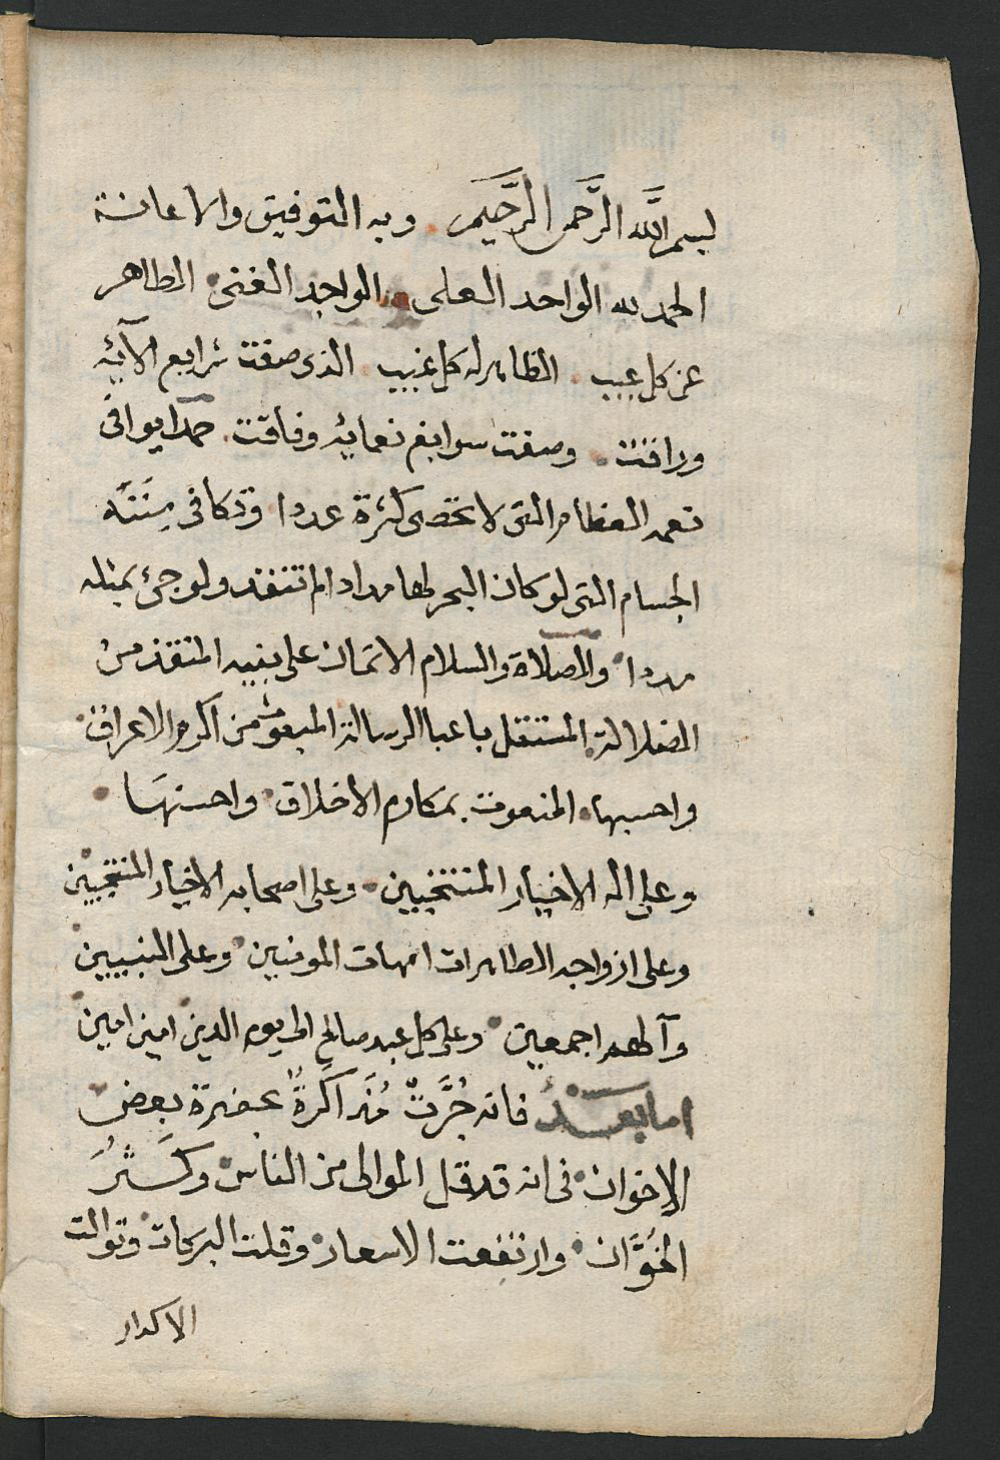 بسم اللَّه الرَّحمن الرَّحيم وبه التوفيق والاعانة
الحمد لله الواحد العلى الواجد الغنى الطاهر
عن كل عيب الظاهر له كل غيب الذى صفت شرايع الآئه
وراقت وصفت سوابغ نعمايه وفاقت حمدا يوافى
نعمه العظام التى لا تحصى كثرة عددا وتكافى مِنَنَه
الجسام التى لو كان البحر لها مدادا لم تنفد ولو جئ بمثله
مددا والصلاة والسلام الاتمان على نبيه المنقذ من
الضلالة المستقل باعبا الرسالة المبعوث من اكرم الاعراق
واحسبها المنعوت بمكارم الاخلاق واحسنهَا
وعلى اله الاخيار المنتخبين وعلى اصحابه الاخيار المنتجبين
وعلى ازواجه الطاهرات امهات المومنين وعلى النبيين
وآلهم اجمعين وعلى كل عبد صالح الى يوم الدين امين امين
اما بعد فانه جُرَّتْ مُذَاكَرةٌ بحضرة بعض
الاخوان فى انه قد قل الموالى من الناس وكَثُرَ
الخُوَّان وارتفعت الاسعار وقلت البركات وتوالت
الاكدار